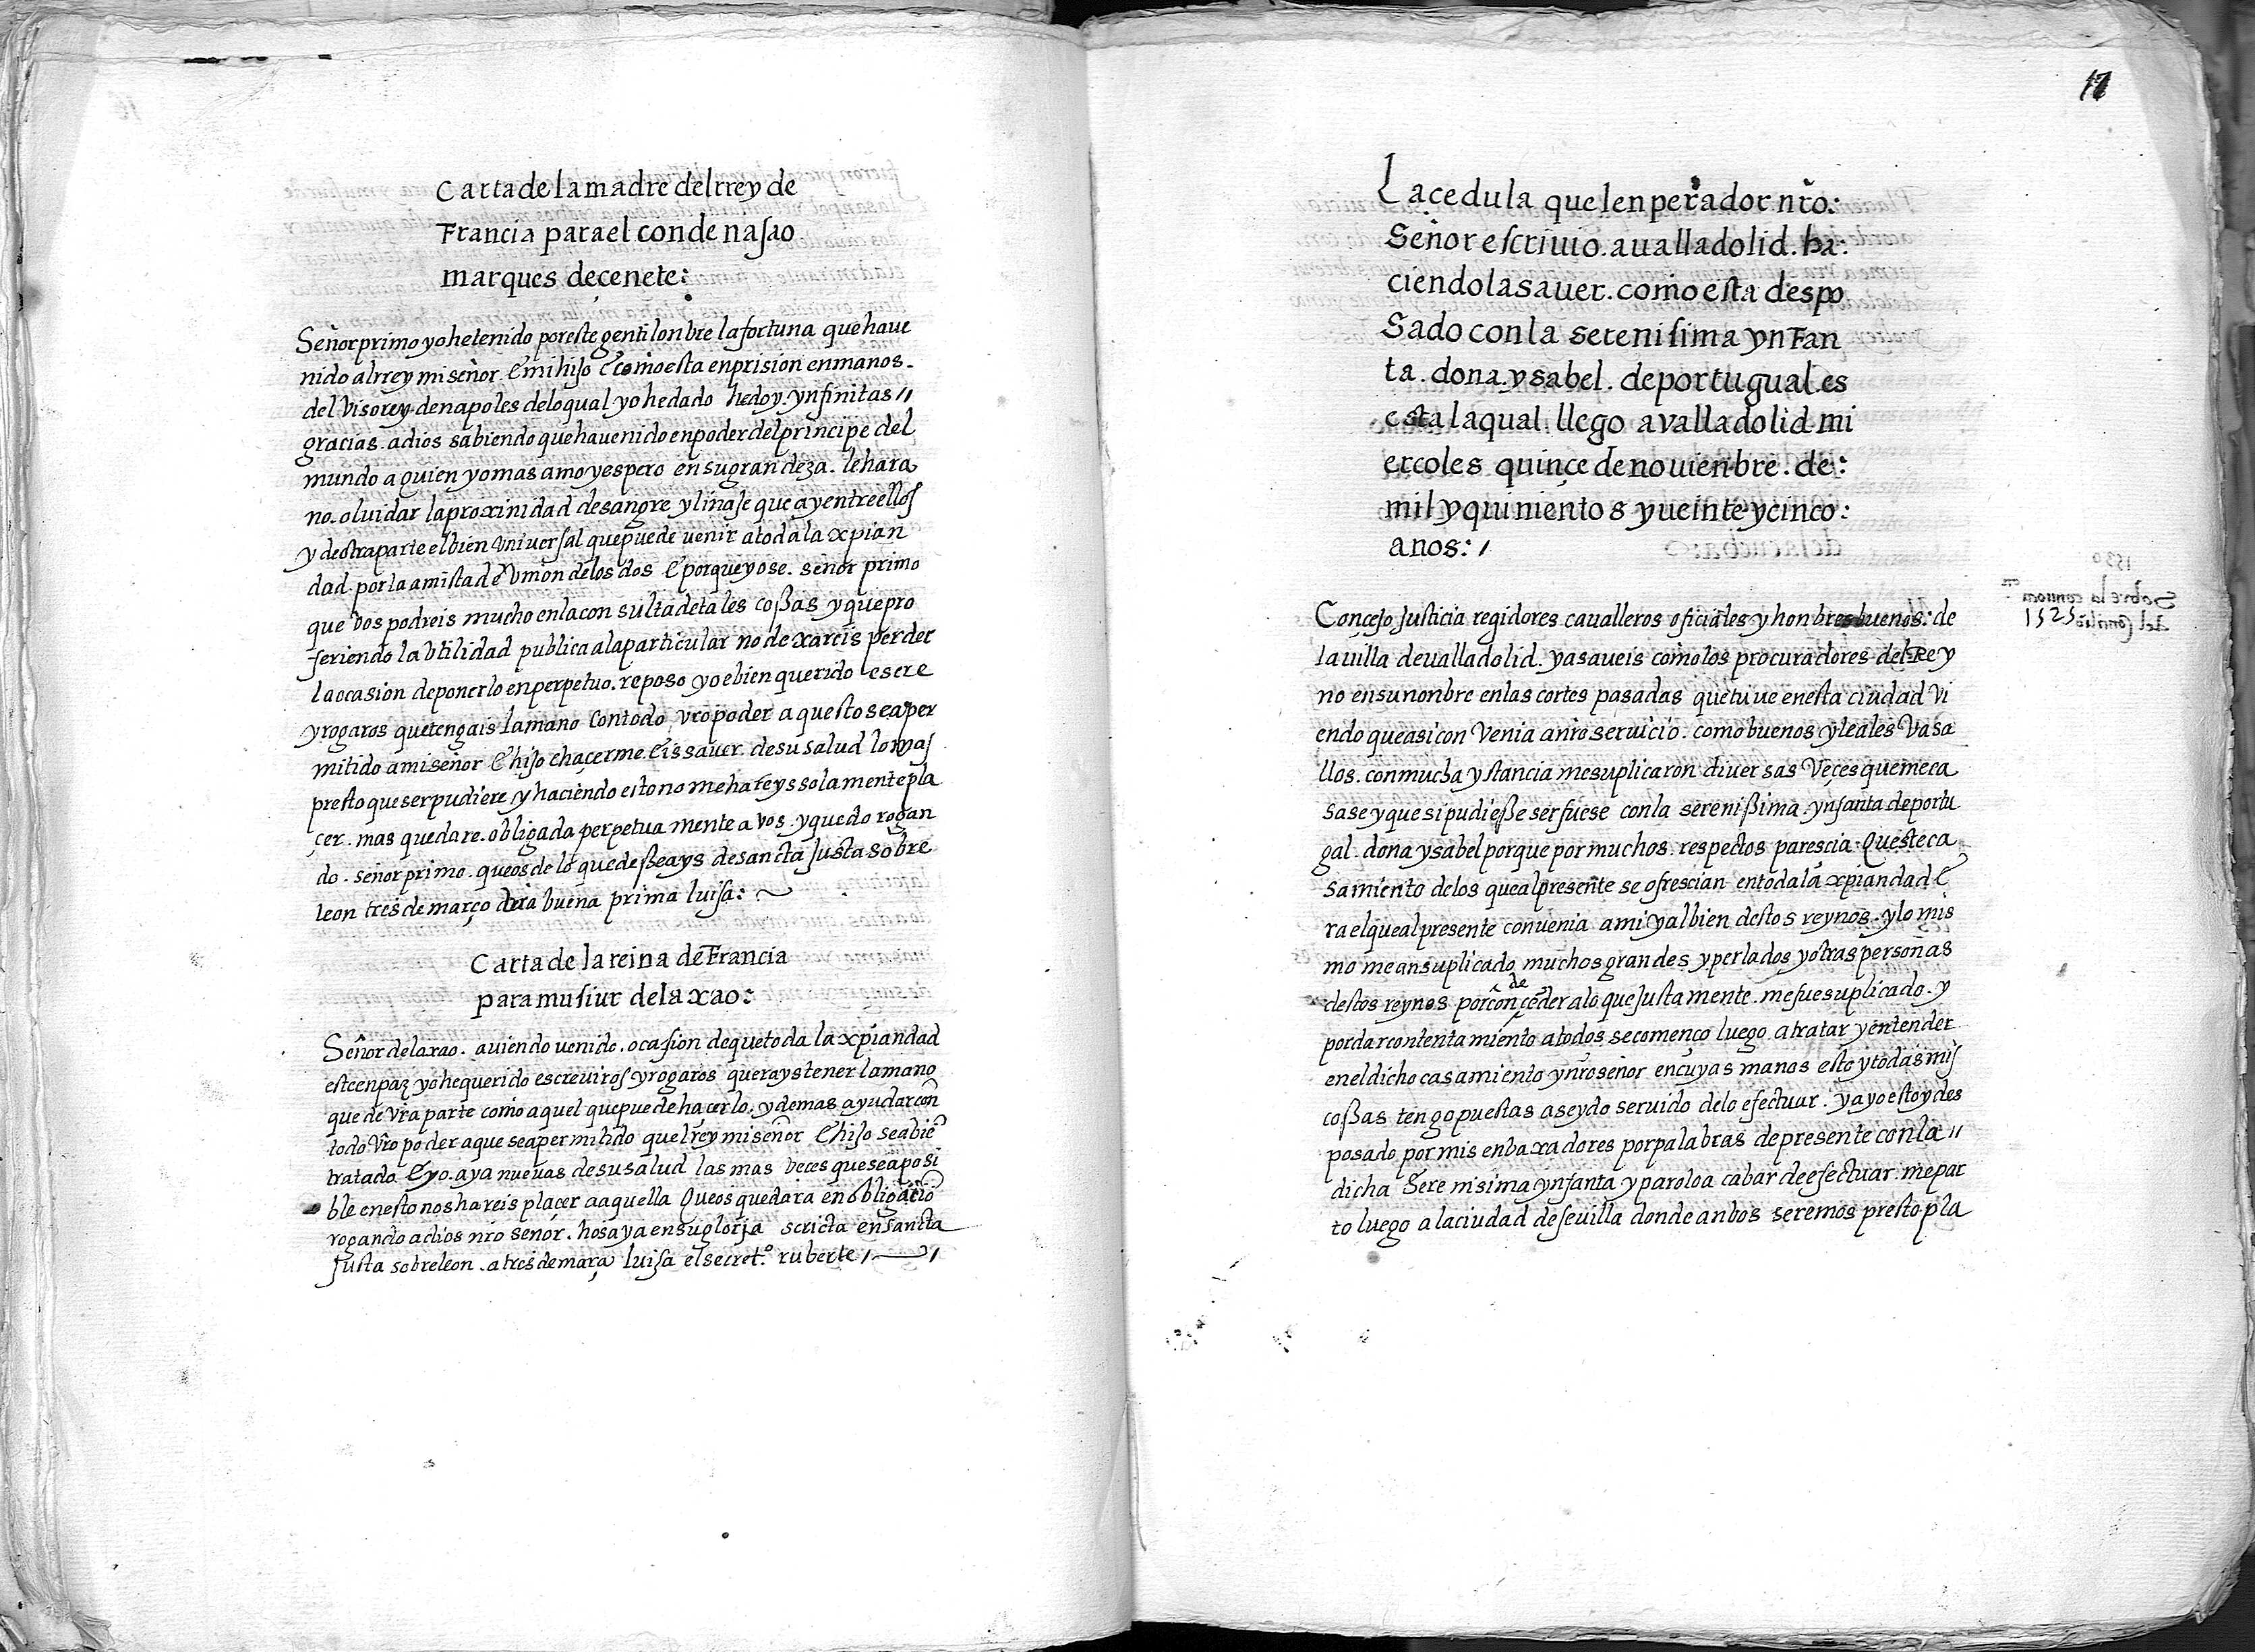 Carta de la madre del rrey de
Francia para el conde nasao
marques de çenete:
Señor primo yo he tenido por este gentilonbre la fortuna que ha ve
nido al rrey mi señor E mi hijo E como esta en prision en manos.
del visorey de napoles de lo qual yo he dado he doy. ynfinitas //
gracias. a dios sabiendo que ha venido en poder del principe del
mundo a quien yo mas amo y espero en su grandeza. le hara
no. olvidar la proxinidad de sangre y linaje que ay entre ellos
y de otra parte el bien vniversal que puede venir a toda la xpian
dad. por la amistad e vnion de los dos E porque yo se. señor primo
que vos podreis mucho en la consulta de tales coßas y que pro
feriendo la vtilidad publica a la particular no dexareis perder
la ocasion de ponerlo en perpetuo. reposo yo e bien querido escre
y rogaros que tengais la mano con todo vro poder a que sto sea per
mitido a mi señor E hijo e haçerme Eis saver. de su salud lo mas
presto que ser pudiere y haciendo esto no me hareys solamente pla
çer. mas quedare. obligada perpetuamente a vos. y quedo rogan
do. señor primo. que os de lo que deßeays de sancta justa sobre
leon tres de março vra buena prima luisa:
Carta de la reina de Francia
para musiur de laxao:
Señor de laxao. aviendo venido. ocasion de que toda la xpiandad
este en paz yo he querido escreviros y rogaros querays tener la mano
que de vra parte como aquel que puede hacerlo. y demas ayudar con
todo vro poder a que sea permitido quel rey mi señor E hijo sea bie
tratado E yo. aya nuevas de su salud las mas veces que sea posi
ble en esto nos hareis plaçer a aquella que os quedara en obligacio
rogando a dios nro señor. hos aya en su gloria scricta en sancta
justa sobre leon. a tres de março luisa el secret.º ruberte /
17
La cedula quel enperador nro:
Señor escrivio. a valladolid. ha:
ciendola saver. como esta despo
sado con la serenisima ynFan
ta. dona. ysabel. de portugual es
esta la qual. llego a valladolid mi
ercoles quinçe de novienbre. de:
mil y quinientos y veinte y cinco:
anos: /
Concejo justicia regidores cavalleros oficiales y honbres buenos: de
la villa de valladolid. ya saveis como los procuradores del Rey
no en su nonbre en las cortes pasadas que tuve en esta ciudad vi
endo que asi convenia a nro servicio. como buenos y leales vasa
llos. con mucha ystancia me suplicaron diversas veçes que me ca
sase y que si pudieße ser fuese con la sereni ßima. ynfanta de portu
gal. dona ysabel porque por muchos. respectos parescia. Queste ca
samiento de los que al presente se ofrescian en toda la xpiandad E
ra el que al presente convenia a mi y al bien destos reynos. y lo mis
mo me an suplicado muchos grandes y perlados y otras personas
destos reynos por condeçeder a lo que justamente. me fue suplicado. y
por dar contentamiento a todos. se començo luego. a tratar y entender
en el dicho casamiento y nro señor en cuyas manos esto y todas mis
coßas tengo puestas a seydo servido de lo efectuar. ya yo estoy des
posado por mis enbaxadores por palabras de presente con la //
dicha Serenisima ynfanta y para lo acabar de efectuar. me par
to luego a la ciudad de sevilla donde anbos seremos presto pla